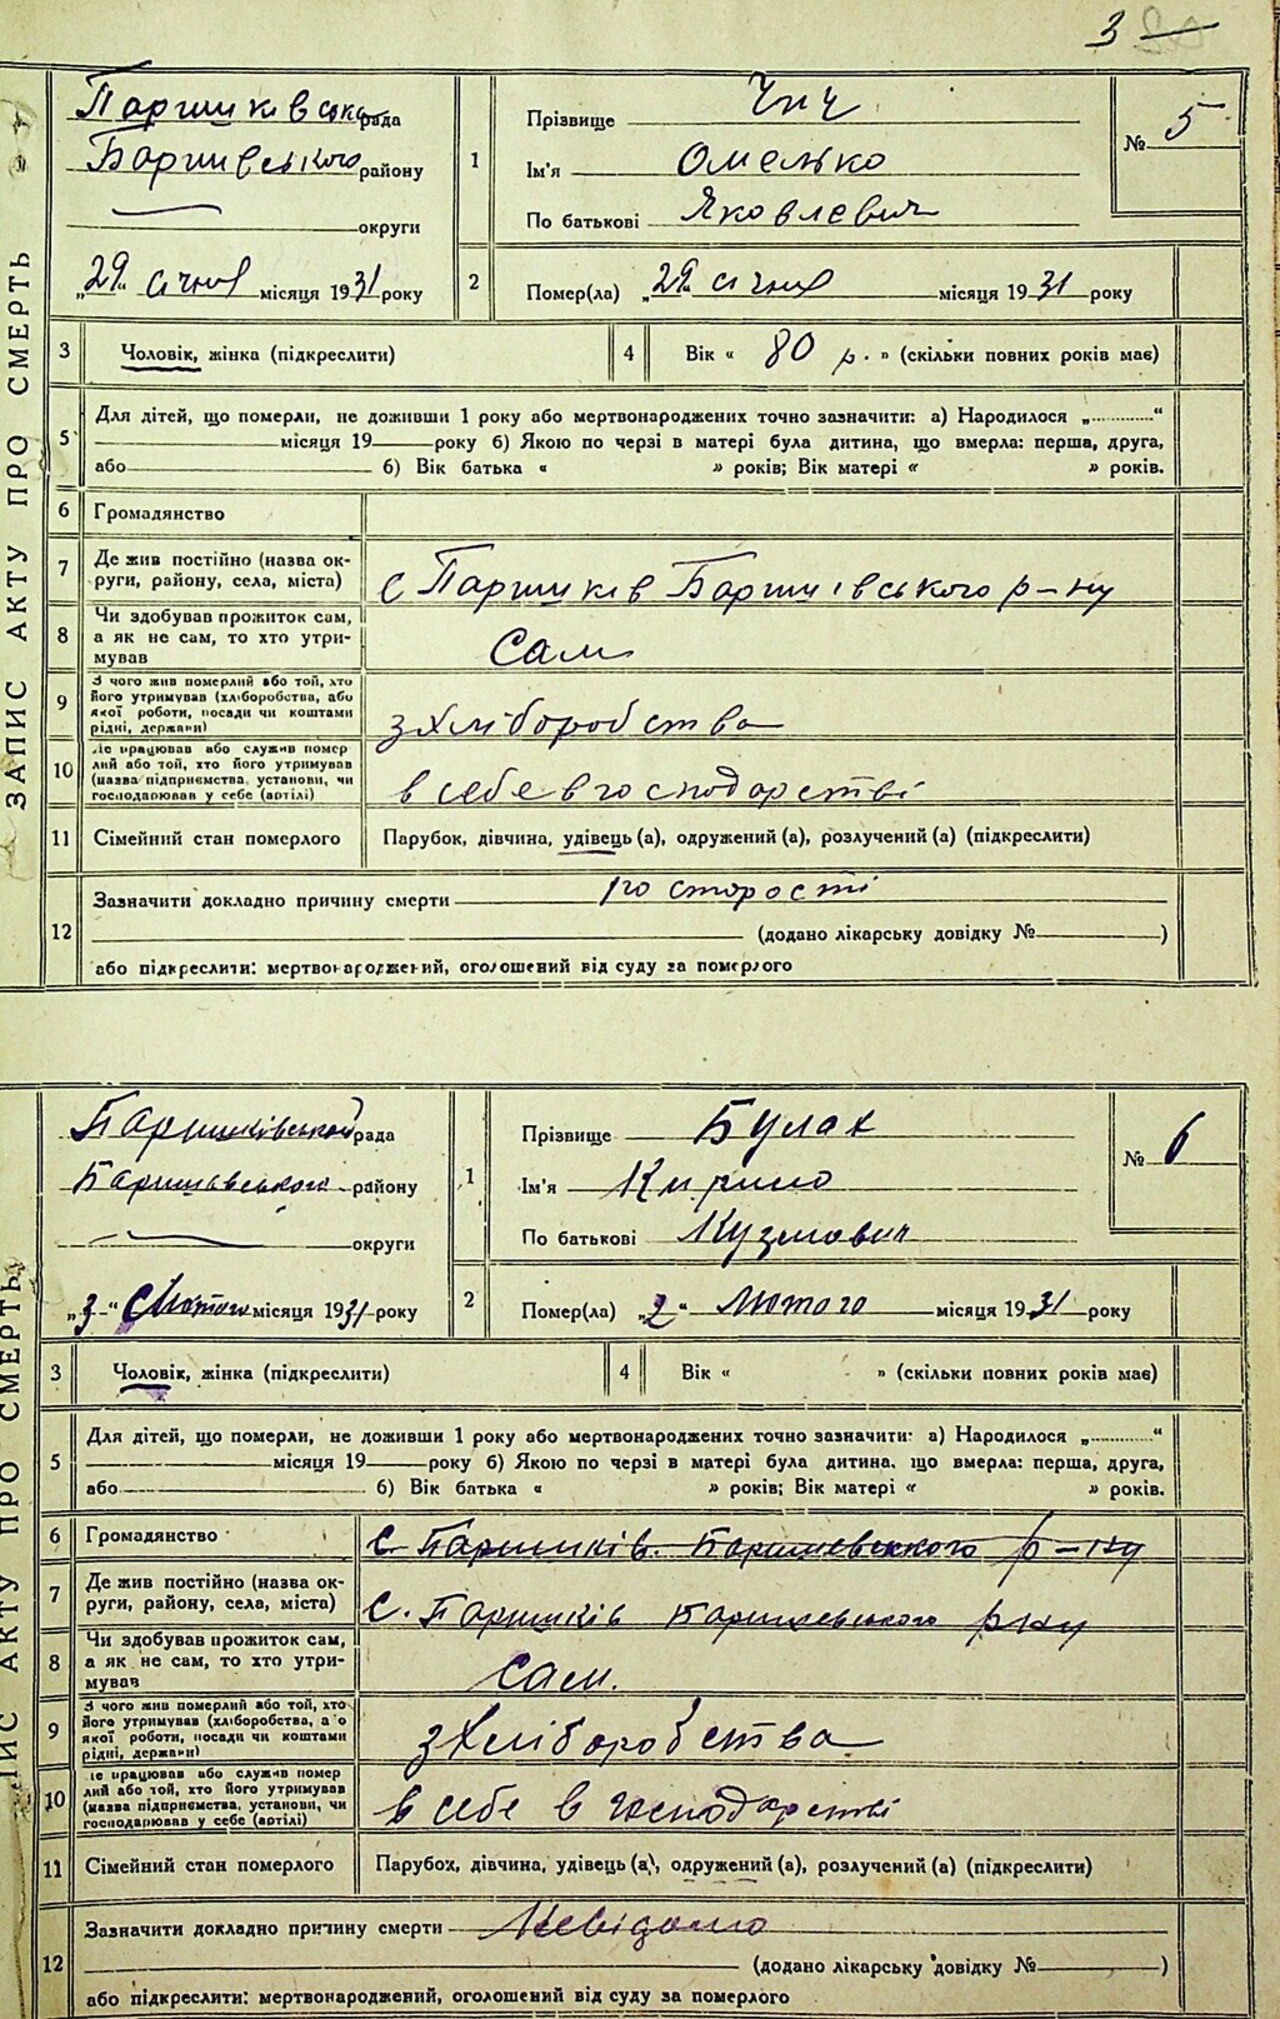 3
ЗАПИС АКТУ ПРО СМЕРТЬ
Паришківська рада
Баришівського району
округи
„29“ січня місяця 1931 року
1
Прізвище Чич
Ім'я Омелько
По батькові Яковлевич
№ 5
2
Помер(ла) „29“ січня місяця 1931 року
3
Чоловік, жінка (підкреслити)
4
Вік « 80 р. » (скільки повних років має)
5
Для дітей, що померли, не доживши 1 року або мертвонароджених точно зазначити: а) Народилося „ “
місяця 19 року б) Якою по черзі в матері була дитина, що вмерла: перша, друга,
або б) Вік батька « » років; Вік матері « » років.
6
Громадянство
7
Де жив постійно (назва ок-
руги, району, села, міста)
с Паришків Баришівського р-ну
8
Чи здобував прожиток сам,
а як не сам, то хто утри-
мував
Сам
9
З чого жив померлий або той, хто
його утримував (хліборобства, або
якої роботи, посади чи коштами
рідні, держави)
з хліборобства
10
Де працював або служив помер
лий або той, хто його утримував
(назва підприємства, установи, чи
господарював у себе (артілі)
в себе в господарстві
11
Сімейний стан померлого
Парубок, дівчина, удівець (а), одружений (а), розлучений (а) (підкреслити)
12
Зазначити докладно причину смерти по старості
(додано лікарську довідку № )
або підкреслити: мертвонароджений, оголошений від суду за померлого
ПИС АКТУ ПРО СМЕРТЬ
Паришківської рада
Баришавського району
округи
„3“ Лютого місяця 1931 року
1
Прізвище Булах
Ім'я Кирило
По батькові Кузмович
№ 6
2
Помер(ла) „2“ Лютого місяця 1931 року
3
Чоловік, жінка (підкреслити)
4
Вік « » (скільки повних років має)
5
Для дітей, що померли, не доживши 1 року або мертвонароджених точно зазначити: а) Народилося „ “
місяця 19 року б) Якою по черзі в матері була дитина, що вмерла: перша, друга,
або б) Вік батька « » років; Вік матері « » років.
6
Громадянство
с Паришків. Баришевского р-ну
7
Де жив постійно (назва ок-
руги, району, села, міста)
С. Паришків Баришевського р-ну
8
Чи здобував прожиток сам,
а як не сам, то хто утри-
мував
Сам.
9
З чого жив померлий або той, хто
його утримував (хліборобства, або
якої роботи, посади чи коштами
рідні, держави)
з хліборобства
10
Де працював або служив помер
лий або той, хто його утримував
(назва підприємства, установи, чи
господарював у себе (артілі)
в себе в господарстві
11
Сімейний стан померлого
Парубок, дівчина, удівець (а), одружений (а), розлучений (а) (підкреслити)
12
Зазначити докладно причину смерти Невідомо
(додано лікарську довідку № )
або підкреслити: мертвонароджений, оголошений від суду за померлого